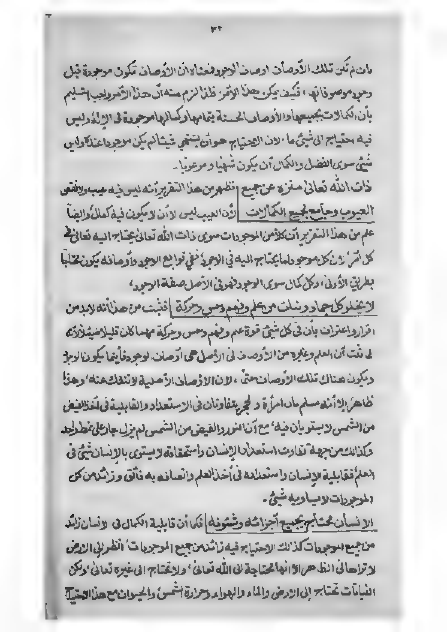 ٣٢
وان لم تكن تلك الأوصاف اوصاف الوجود فمعناه ان الأوصاف تكون موجودة قبل
وجود موصوفاتها، فكيف يكن هذا الأمر. فلما لزم منه أن هذا الأمر واجب التسليم
بأن الكمالات بجميعها والأوصاف الحسنة بتمامها وكمالها موجودة فى الإله وليس
فيه احتياج الى شيئ ما، لان الاحتياج هو أن تشتهى شيئا لم يكن موجودا عندك وليس
شيئ سوى الفضل والكمال أن يكون شهيا ومرغوبا۔
ذات الله تعالى منزه عن جميع فظهر من هذا التقرير أنه ليس فيه عيب ولا نقص
العيوب وجامع لجميع الكمالات لأن العيب ليس الا أن لا يكون فيه كمال وايضا
علم من هذا التقرير أن كلا من الموجودات سوى ذات الله تعالى محتاج اليه تعالى فى
كل أمر، لان كل موجود لما يحتاج اليه فى الوجود ففى توابع الوجود وأوصافه يكون محتاجا
بطريق الأولى، وكل كمال سوى الوجود فهو فى الأصل صفة الوجود؛
لا يخلو كل جماد ونبات من علم وفهم وحس وحركة فثبت من هذا أنه لابد من
اقرار واعتراف بأن فى كل شيئ قوة علم وفهم وحس وحركة مهما كان قليلا ضئيلا لانه
لما ثبت أن العلم وغيره من الأوصاف فى الأصل هى أوصاف الوجود فأينما يكون الوجود
ويكون هناك تلك الأوصاف حتى، لان الأوصاف الأصلية لا تنفك عنه، وهذا
ظاهر بلا أنه مسلم بأن المرأة والحجر يتفاوتان فى الاستعداد والقابلية فى أخذ الفيض
من الشمس لا يستويان فيه، مع أن النور والفيض من الشمس لم يزل جار على نمط واحد
وكذلك من جهة تفاوت استعداد الإنسان واستحقاقه لا يستوى بالإنسان شيئ فى
العلم فقابلية الإنسان واستعداده فى أخذ العلم واتصافه به فائق وزائد من كل
الموجودات لا يساويه شيئ۔
الإنسان محتاج بجميع أجزائه وشئونه فكما أن قابلية الكمال فى الانسان زائد
من جميع الموجودات كذالك الاحتياج فيه زائد من جميع الموجودات، انظر الى الارض
لا تراها فى الظاهر الا أنها محتاجة الى الله تعالى، ولا تحتاج الى غيره تعالى، ولكن
النباتات تحتاج إلى الارض والماء والهواء وحرارة الشمس والحيوان مع هذا